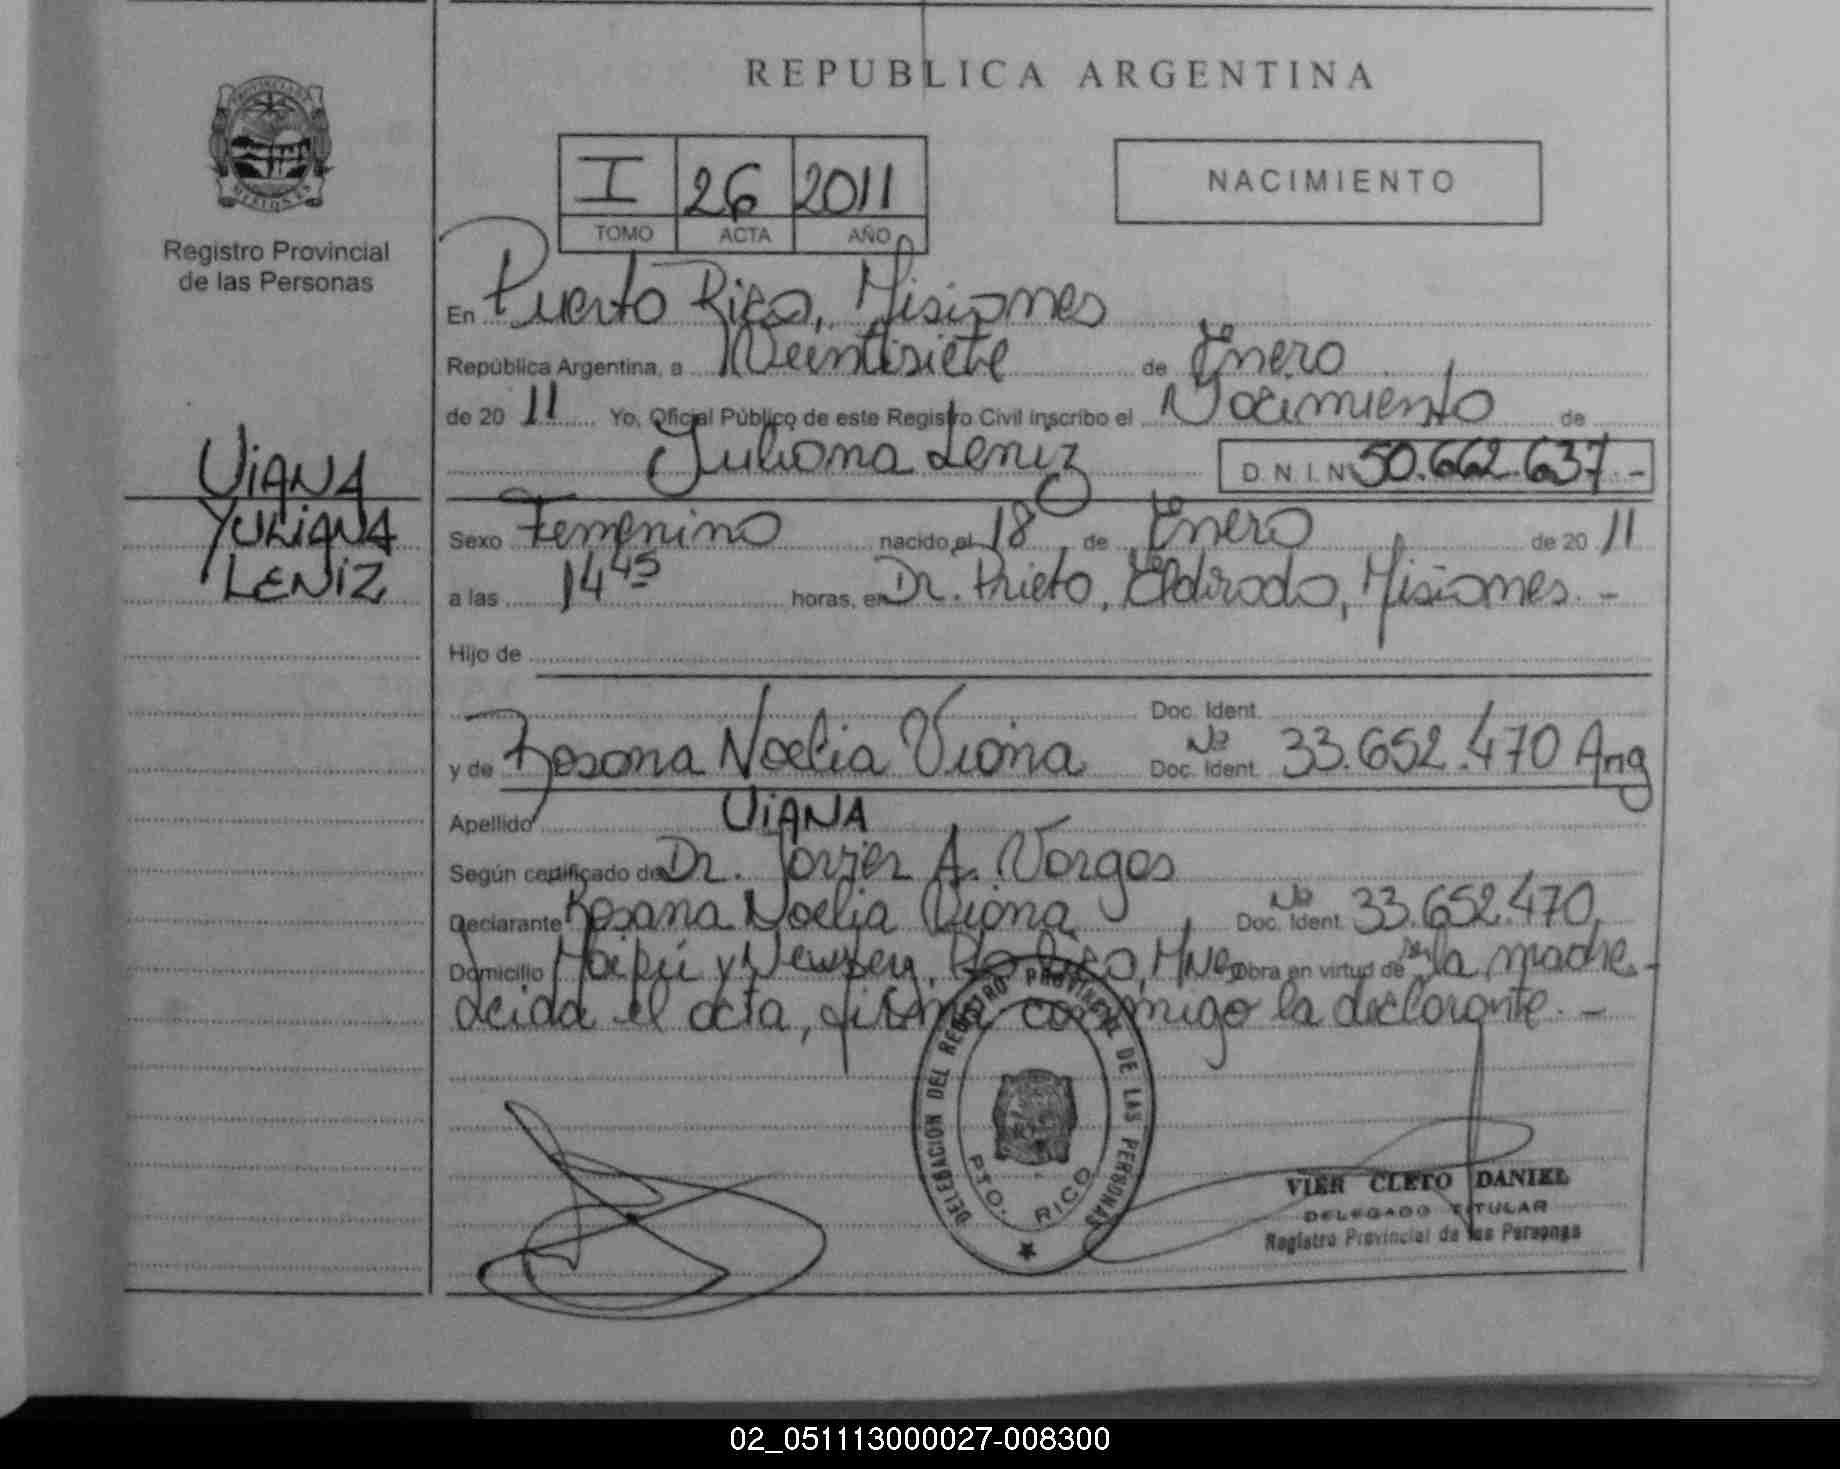 REPUBLICA ARGENTINA
PROVINCIA DE MISIONES
Registro Provincial
de las Personas
I 26 2011
TOMO ACTA AÑO
NACIMIENTO
En Puerto Rico, Misiones
República Argentina, a Veintisiete de Enero
de 20 11 Yo, Oficial Público de este Registro Civil inscribo el Nacimiento de
Yuliana Leniz D.N.I. N 50.662.637.-
VIANA
YULIANA
LENIZ
Sexo Femenino nacido el 18 de Enero de 20 11
a las 14 45 horas, en Dr. Prieto, Eldorado, Misiones.-
Hijo de
Doc. Ident.
y de Rosana Noelia Viana Doc. Ident. Nº 33.652.470 Arg
Apellido VIANA
Según certificado de Dr. Javier A. Vargas
Declarante Rosana Noelia Viana Doc. Ident. Nº 33.652.470
Domicilio Maipú y , Pto Rico, Mnes Obra en virtud de ser la madre.-
Leida el acta, firma conmigo la declarante.-
DELEGACION DEL REGISTRO PROVINCIAL DE LAS PERSONAS
PTO. RICO
VIER CLETO DANIEL
DELEGADO TITULAR
Registro Provincial de las Personas
02_051113000027-008300